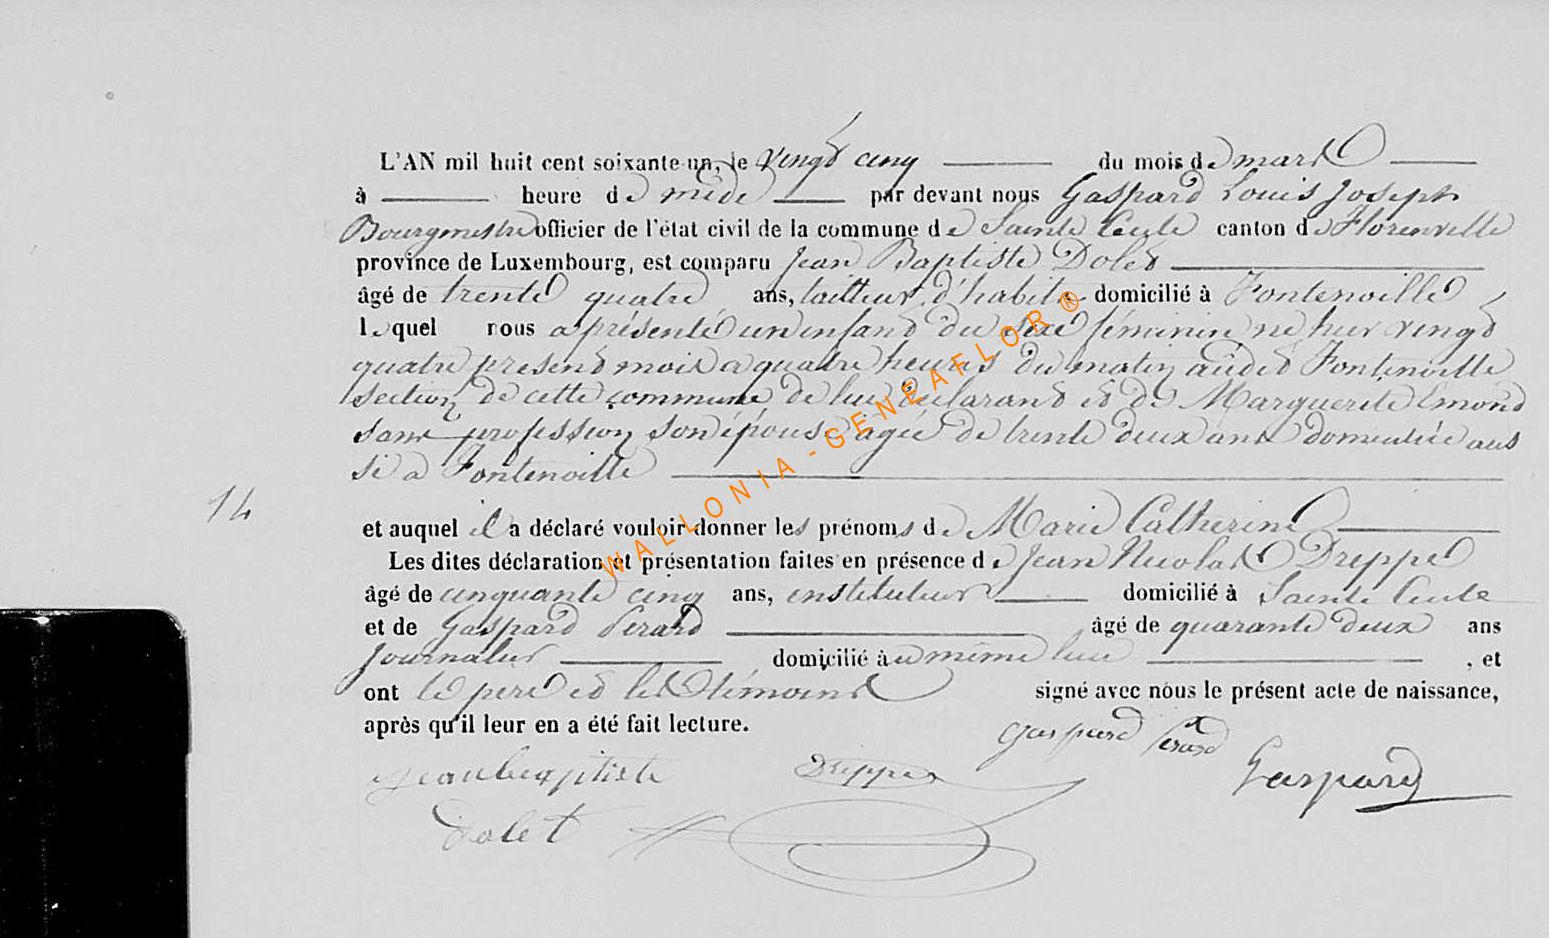 L'AN mil huit cent soixante-un, le vingt cinq du mois de mars
à heure de midi par devant nous Gaspard Louis Joseph
Bourgmestre officier de l'état civil de la commune de Sainte Cecile canton de Florenville
province de Luxembourg, est comparu Jean Baptiste Dolet
âgé de trente quatre ans, tailleur d'habits domicilié à Fontenoille
lequel nous a présenté un enfant du sexe féminin né hier vingt
quatre present mois a quatre heures du matin audit Fontenoille
section de cette commune de lui déclarant et de Marguerite Emond
sans profession son épouse agée de trente deux ans domiciliée aus
si a Fontenoille
14
et auquel il a déclaré vouloir donner les prénoms de Marie Catherine
Les dites déclaration et présentation faites en présence de Jean Nicolas Dreppe
âgé de cinquante cinq ans, instituteur domicilié à Sainte Cecile
et de Gaspard Pérard âgé de quarante deux ans
Journalier domicilié au même lieu , et
ont le pere et les témoins signé avec nous le présent acte de naissance,
après qu'il leur en a été fait lecture.
gaspard Pérard
jean baptiste Dreppe Gaspard
dolet
WALLONIA - GENEAFLOR ®